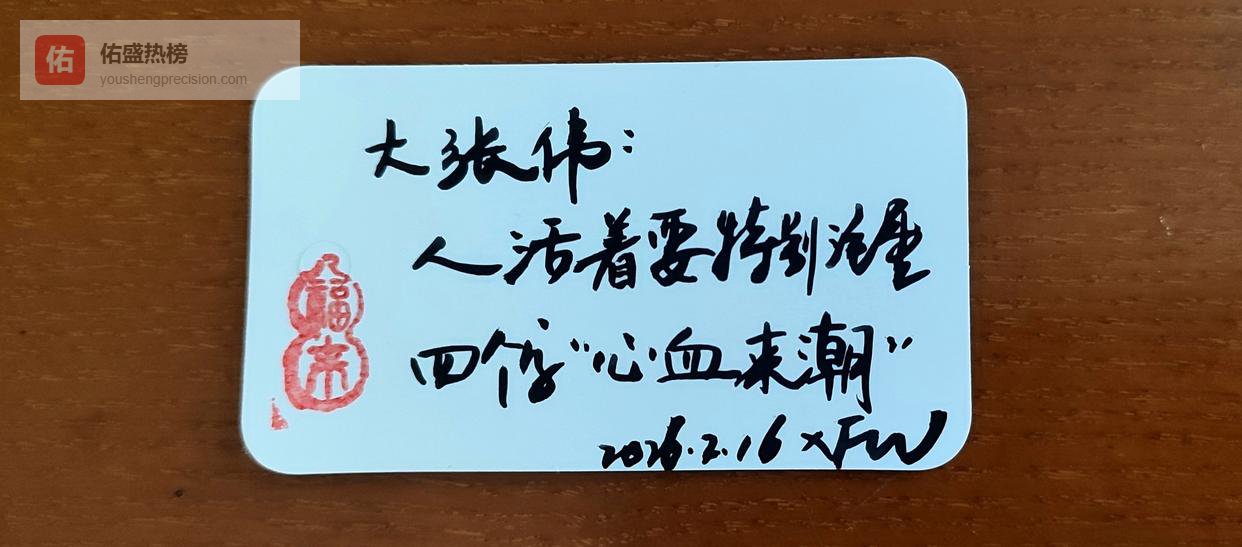 佑
佑盛热榜
youshengprecision.com
大张伟：
人活着要特别注重
四个字“心血来潮”
福来
2026.2.16 XFW